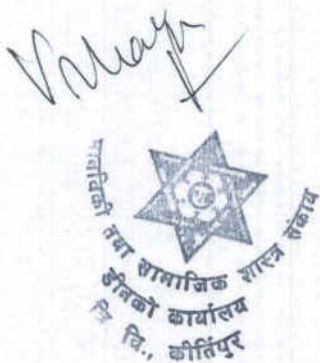 मानविकी तथा सामाजिक शास्त्र संकाय
डीनको कार्यालय
त्रि. वि., कीर्तिपुर